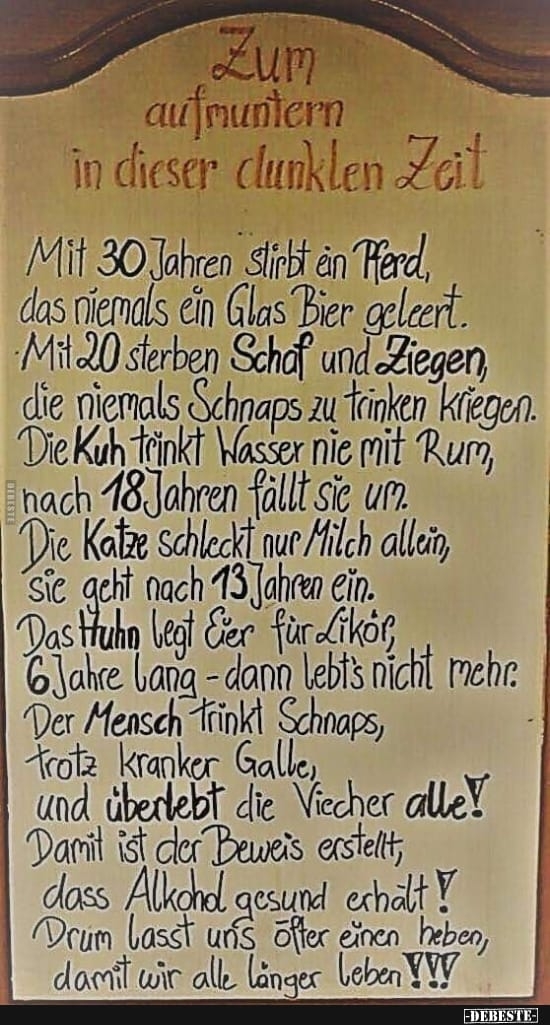 Zum
aufmuntern
in dieser dunklen Zeit
Mit 30 Jahren stirbt ein Pferd,
das niemals ein Glas Bier geleert.
Mit 20 sterben Schaf und Ziegen,
die niemals Schnaps zu trinken kriegen.
Die Kuh trinkt Wasser nie mit Rum,
nach 18 Jahren fällt sie um.
Die Katze schleckt nur Milch allein,
sie geht nach 13 Jahren ein.
Das Huhn legt Eier für Likör,
6 Jahre lang - dann lebt's nicht mehr.
Der Mensch trinkt Schnaps,
trotz kranker Galle,
und überlebt die Viecher alle!
Damit ist der Beweis erstellt,
dass Alkohol gesund erhält!
Drum lasst uns öfter einen heben,
damit wir alle länger leben!!!
DEBESTE
-DEBESTE-